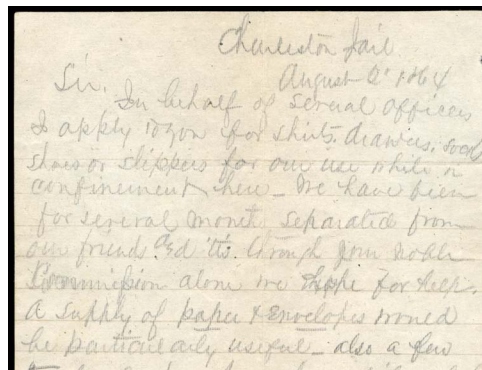 Charleston Jail
August 2' 1864
Sir.
In behalf of several officers
I apply to you for shirts. drawers. socks
shoes or slippers for our use while in
confinement here _ We have been
for several months separated from
our friends and its through your noble
Commission alone we hope for help.
A supply of paper & envelopes would
be particularly useful _ also a few